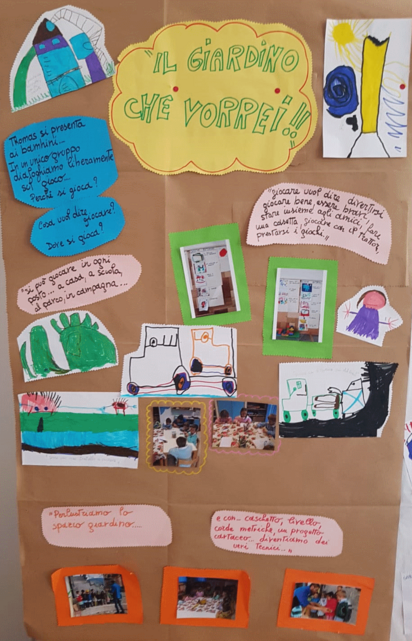 "IL GIARDINO
CHE VORREI!!"
Thomas si presenta
ai bambini...
In un unico gruppo
dialoghiamo liberamente
sul gioco...
Perché si gioca?
Cosa vuol dire
giocare?
Dove si gioca?
"Giocare vuol dire divertirsi
giocare bene, essere bravi,
stare insieme agli amici, fare
una casetta, giocare con il trattore,
prestarsi i giochi"...
"Si può giocare in ogni
posto... a casa, a scuola,
al parco, in campagna...
"Perlustriamo lo
spazio giardino...
e con... caschetto, livello,
corde metriche, un progetto
cartaceo... diventiamo dei
veri Tecnici..."